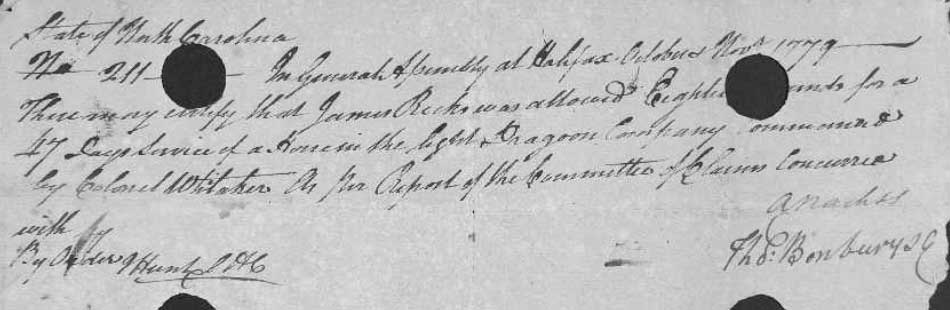 State of North Carolina
No 211 In General Assembly at Halifax October Novr 1779
These may certify that James Ricks was allowed Eighte unds for a
47 Days Service of a Horse in the light Dragoon Company Commanded
by Colonel Whitaker As Per Report of the Committee of Claims Concurred
with
By Order J Hunt C H C
A Nash SS
Thos. Bonbury S C